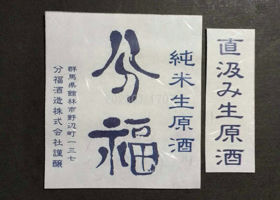 直汲み生原酒
純米生原酒
分福
群馬県館林市野辺町一三七
分福酒造株式会社謹醸